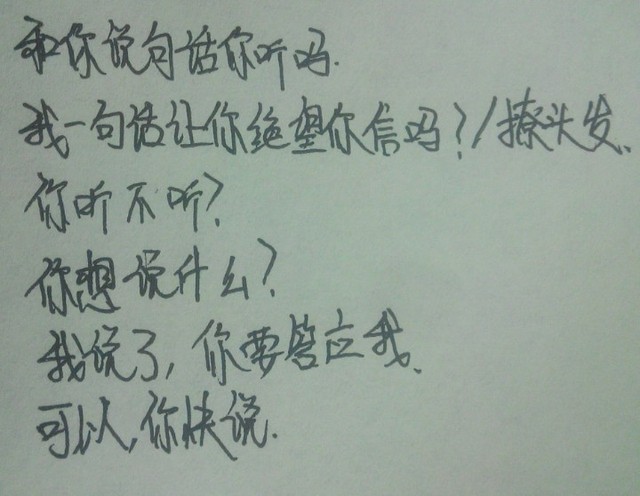 和你说句话你听吗.
我一句话让你绝望你信吗?/撩头发、
你听不听?
你想说什么?
我说了,你要答应我、
可以,你快说.